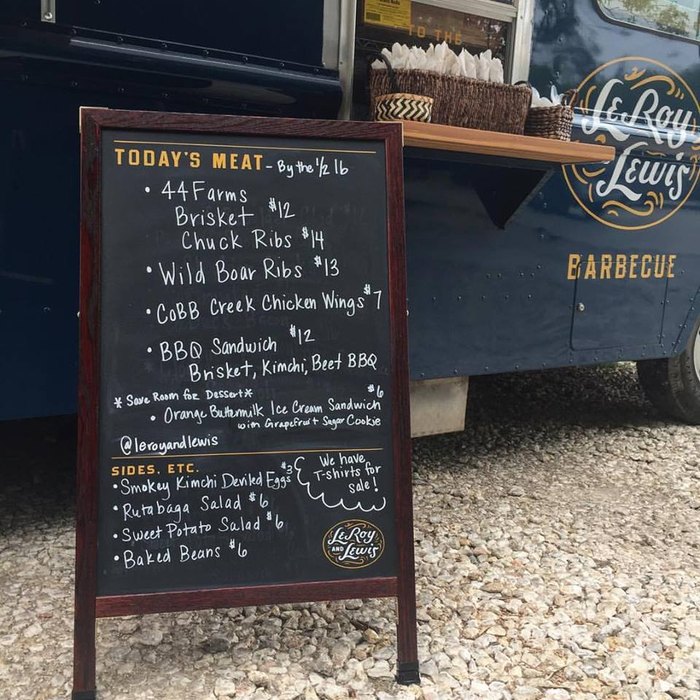 TO THE
LeRoy
AND
Lewis
BARBECUE
TODAY'S MEAT - By the 1/2 lb
• 44 Farms
Brisket $12
Chuck Ribs $14
• Wild Boar Ribs $13
• CoBB Creek Chicken Wings $7
• BBQ Sandwich $12
Brisket, Kimchi, Beet BBQ
* Save Room for Dessert *
• Orange Buttermilk Ice Cream Sandwich $6
with Grapefruit Sugar Cookie
@leroyandlewis
SIDES, ETC.
• Smokey Kimchi Deviled Eggs $3
• Rutabaga Salad $6
• Sweet Potato Salad $6
• Baked Beans $6
We have
T-shirts for
sale!
LeRoy
AND
Lewis